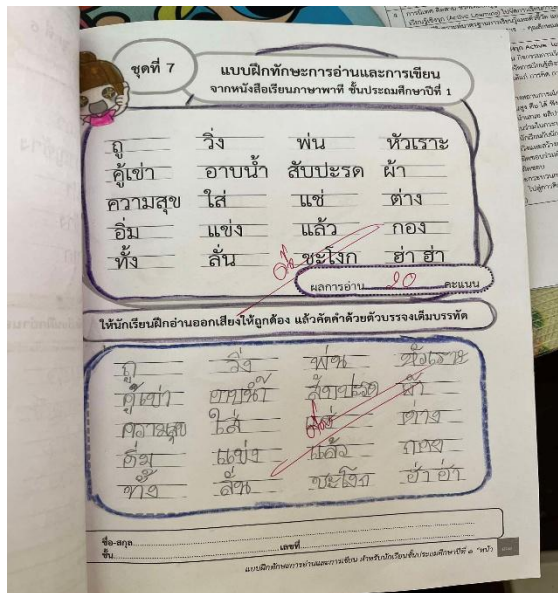 ชุดที่ 7
แบบฝึกทักษะการอ่านและการเขียน
จากหนังสือเรียนภาษาพาที ชั้นประถมศึกษาปีที่ 1
ถู วิ่ง พ่น หัวเราะ
คู้เข่า อาบน้ำ สับปะรด ผ้า
ความสุข ใส่ แช่ ต่าง
อิ่ม แข่ง แล้ว กอง
ทั้ง ลั่น ชะโงก ฮ่า ฮ่า
ผลการอ่าน 20 คะแนน
ให้นักเรียนฝึกอ่านออกเสียงให้ถูกต้อง แล้วคัดคำด้วยตัวบรรจงเต็มบรรทัด
ถู วิ่ง พ่น หัวเราะ
คู้เข่า อาบน้ำ สับปะรด ผ้า
ความสุข ใส่ แช่ ต่าง
อิ่ม แข่ง แล้ว กอง
ทั้ง ลั่น ชะโงก ฮ่า ฮ่า
ชื่อ-สกุล
ชั้น เลขที่
แบบฝึกทักษะการอ่านและการเขียน สำหรับนักเรียนชั้นประถมศึกษาปีที่ ๑ หน้า